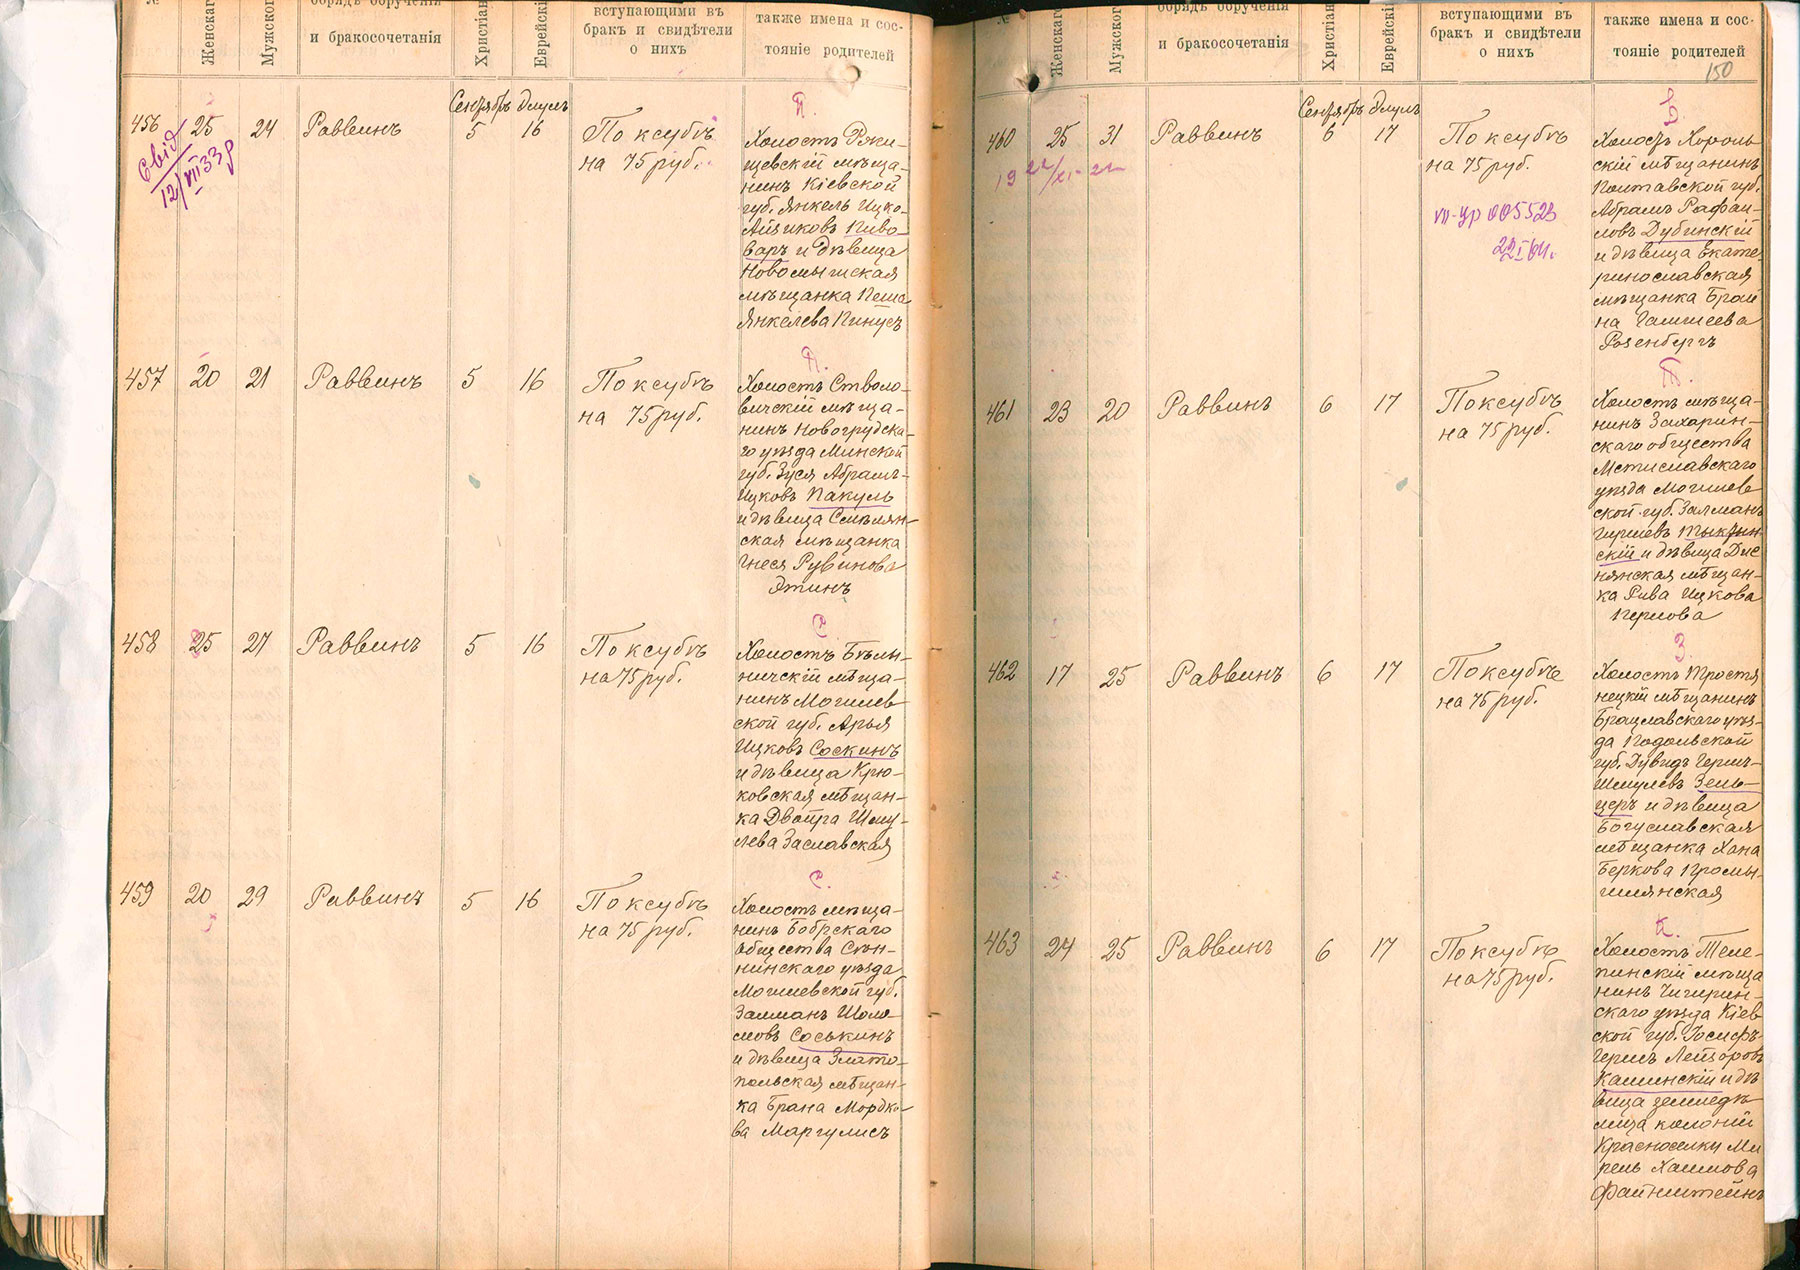 №
Женскаго
Мужского
обрядъ обрученія
и бракосочетанія
Христіан
Еврейскі
вступающими въ
бракъ и свидѣтели
о нихъ
также имена и сос-
тояніе родителей
456
25
24
Раввинъ
Сентябрь
5
Элулъ
16
По ксубѣ
на 75 руб.
Свід
12/VII 33 р
П.
Холостъ Ржи-
щевскій мѣща-
нинъ Кіевской
губ. Янкель Ицко-
Айзиковъ Пиво-
варъ и дѣвица
Новомышская
мѣщанка Пеша
Янкелева Пинусъ
457
20
21
Раввинъ
5
16
По ксубѣ
на 75 руб.
П.
Холостъ Стволо-
вичскій мѣща-
нинъ Новогрудска-
го уѣзда Минской
губ. Зуся Абрамъ-
Ицковъ Пакуль
и дѣвица Смѣлян-
ская мѣщанка
Гнеся Рувинова
Этинъ
458
25
27
Раввинъ
5
16
По ксубѣ
на 75 руб.
С.
Холостъ Бѣлы-
ничскій мѣща-
нинъ Могилев
ской губ. Арья
Ицковъ Соскинъ
и дѣвица Крю-
ковская мѣщан-
ка Двойра Шму-
лева Заславская
459
20
29
Раввинъ
5
16
По ксубѣ
на 75 руб.
С.
Холостъ мѣща-
нинъ Бобрскаго
общества Сѣн-
нинскаго уѣзда
Могилевской губ.
Залманъ Шоло-
мовъ Соськинъ
и дѣвица Злато-
польская мѣщан-
ка Брана Мордко-
ва Маргулисъ
№
Женскаго
Мужского
обрядъ обрученія
и бракосочетанія
Христіан
Еврейскі
вступающими въ
бракъ и свидѣтели
о нихъ
также имена и сос-
тояніе родителей
150
460
25
31
Раввинъ
Сентябрь
6
Элулъ
17
По ксубѣ
на 75 руб.
005523
22 I 64.
Холостъ Хороль-
скій мѣщанинъ
Полтавской губ.
Абрамъ Рафаи-
ловъ Дубинскій
и дѣвица Екате-
ринославская
мѣщанка Брай
на
Розенбергъ
461
23
20
Раввинъ
6
17
По ксубѣ
на 75 руб.
Холостъ мѣща-
нинъ Захарин-
скаго общества
Мстиславскаго
уѣзда Могилев
ской губ. Залманъ
Гиршевъ Тыктин-
скій и дѣвица Дис
нянская мѣщан-
ка Рива Ицкова
Перлова
462
17
25
Раввинъ
6
17
По ксубѣ
на 75 руб.
З.
Холостъ Тростя
нецкій мѣщанинъ
Брацлавскаго уѣз-
да Подольской
губ. Дувидъ Гершъ-
Шмулевъ Зель-
церъ и дѣвица
Богуславская
мѣщанка Хана
Беркова Промы-
шлянская
463
24
25
Раввинъ
6
17
По ксубѣ
на 75 руб.
К.
Холостъ Теле-
пинскій мѣща
нинъ Чигирин-
скаго уѣзда Кіев
ской губ. Іосифъ-
Гершъ Лейзоровъ
Калинскій и дѣ
вица землед​ѣ
лица колоніи
Красноселки Ми
рель Хаимова
Файнштейнъ